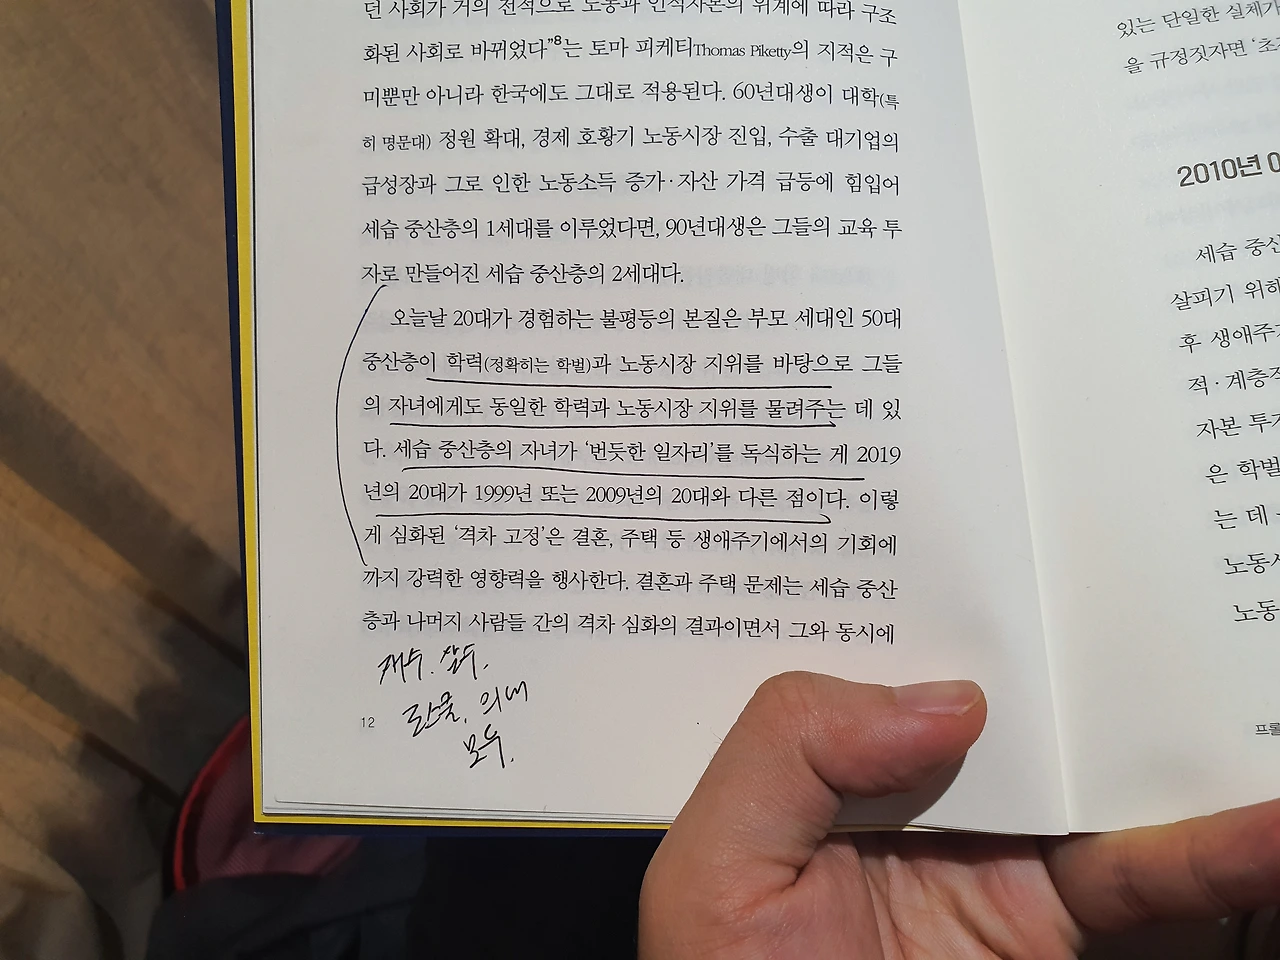 던 사회가 거의 전적으로 노동과 인적자본의 위계에 따라 구조
화된 사회로 바뀌었다”8는 토마 피케티Thomas Piketty의 지적은 구
미뿐만 아니라 한국에도 그대로 적용된다. 60년대생이 대학(특
히 명문대) 정원 확대, 경제 호황기 노동시장 진입, 수출 대기업의
급성장과 그로 인한 노동소득 증가·자산 가격 급등에 힘입어
세습 중산층의 1세대를 이루었다면, 90년대생은 그들의 교육 투
자로 만들어진 세습 중산층의 2세대다.
오늘날 20대가 경험하는 불평등의 본질은 부모 세대인 50대
중산층이 학력(정확히는 학벌)과 노동시장 지위를 바탕으로 그들
의 자녀에게도 동일한 학력과 노동시장 지위를 물려주는 데 있
다. 세습 중산층의 자녀가 ‘번듯한 일자리’를 독식하는 게 2019
년의 20대가 1999년 또는 2009년의 20대와 다른 점이다. 이렇
게 심화된 ‘격차 고정’은 결혼, 주택 등 생애주기에서의 기회에
까지 강력한 영향력을 행사한다. 결혼과 주택 문제는 세습 중산
층과 나머지 사람들 간의 격차 심화의 결과이면서 그와 동시에
모두.
12
있는 단일한 실체가
을 규정짓자면 ‘초
2010년
세습 중산
살피기 위해
후 생애주기
적·계층적
자본 투
은 학벌
는 데
노동시
노동
프롤